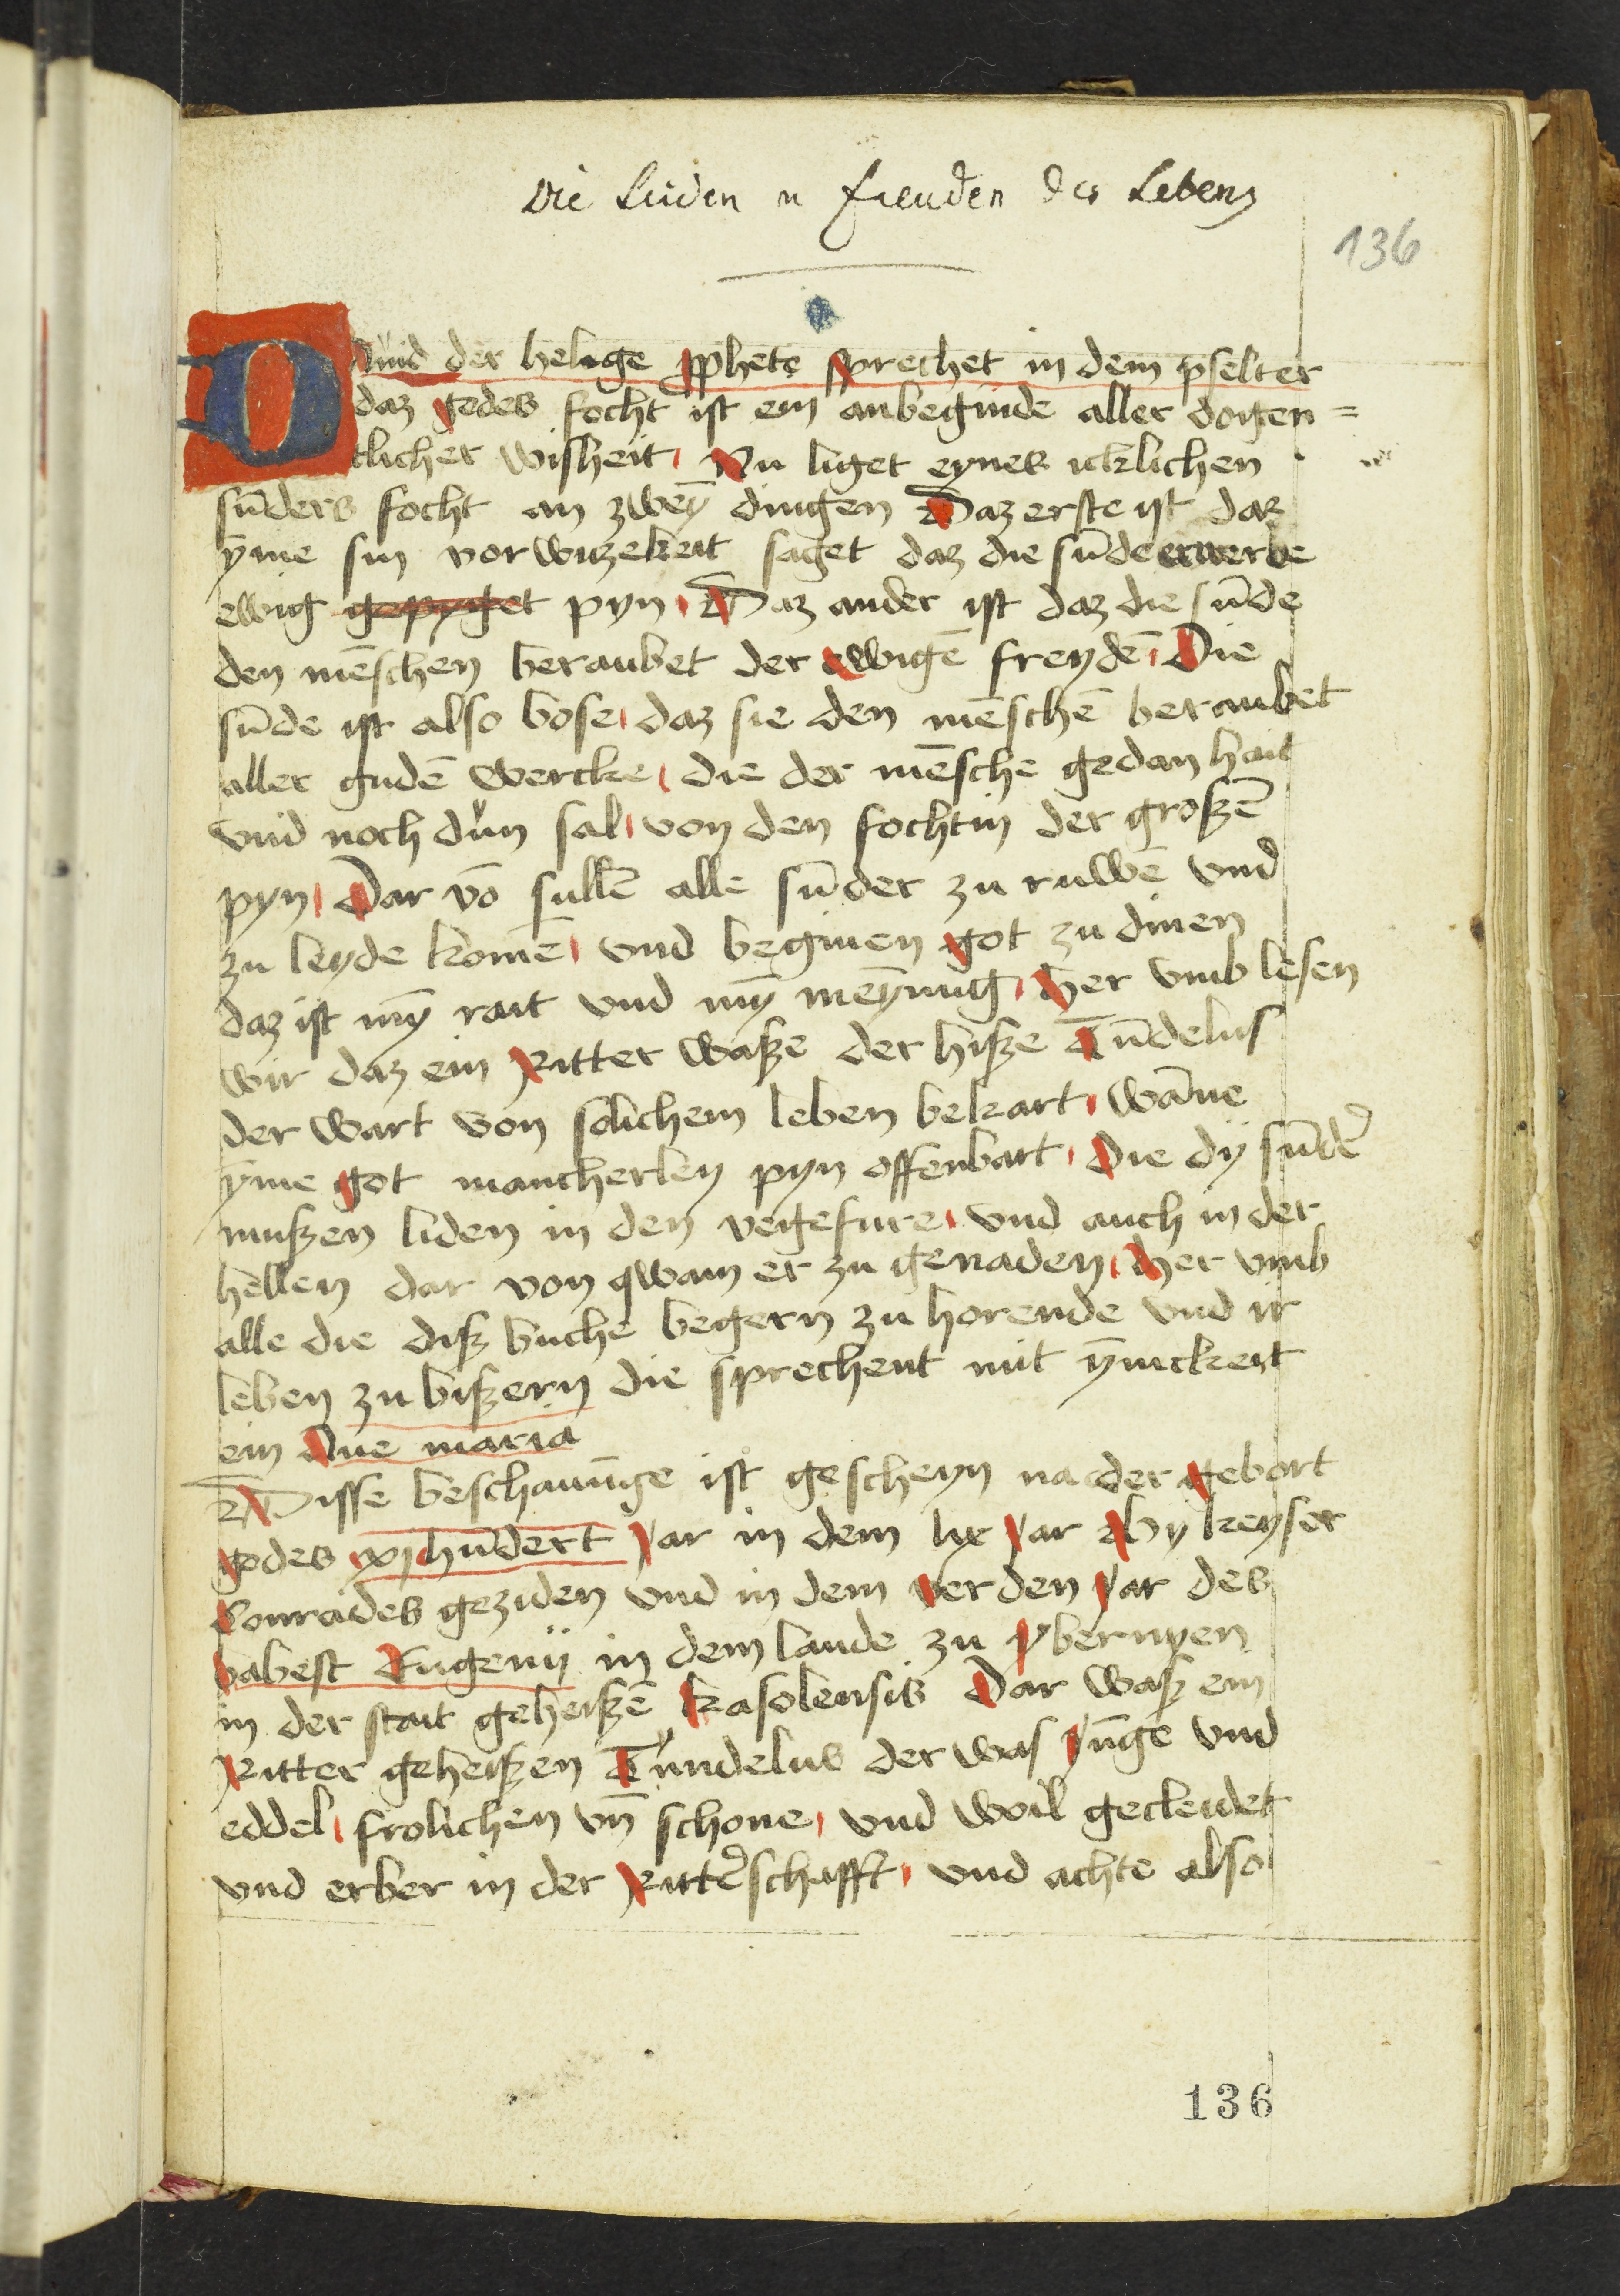 Die Leiden u Freuden des Lebens
136
Dauid der helige ꝓphete sprechet in dem pselter
daz gedes focht ist ein anbeginde aller dogen=
tlicher wisheit Nu liget eynes icklichen
sūders focht an zweȳ dingen Daz erste ist daz
ẏme sin vorwizekeit saget daz die sūde erwerbe
ewig gepyget pyn Daz ander ist daz die sūde
den mēschen beraubet der ewigē freydē Die
sūde ist also bose daz sie den mēschē beraubet
aller gudē wercke die der mēsche gedan hait
vnd noch dun sal von den fochtin der groszē
pyn Dar vō sullē alle sūder zu ruwē vnd
zu leyde komē vnd beginen got zu dinen
daz ist mȳ rait vnd mȳ meȳnūg Her vmb lesen
wir daz ein Ritter wasze der hisze Tūdelus
der wart von solichem leben bekart wāne
ẏme got mancherley pyn offenbart Die dÿ sūder
muszen liden in den vegefure vnd auch in der
hellen dar von qwam er zu genaden Her vmb
alle die disz buche begern zu horende vnd ir
leben zu biszern die sprechent mit ȳnickeit
ein Aue maria
Disse beschauūge ist gescheyn na der gebort
godes xj hūdert Jar in dem lix Jar By keyser
Conrades geziden vnd in dem verden Jar des
babest Eugenij in dem lande zu ybernyen
in der stait geheiszē kasolensis Dar wasz ein
Ritter geheiszen Tundelus der was Jūge vnd
eddel frolichen vn̄ schone vnd woil gecleidet
vnd erber in der Ritterschafft vnd achte also
136